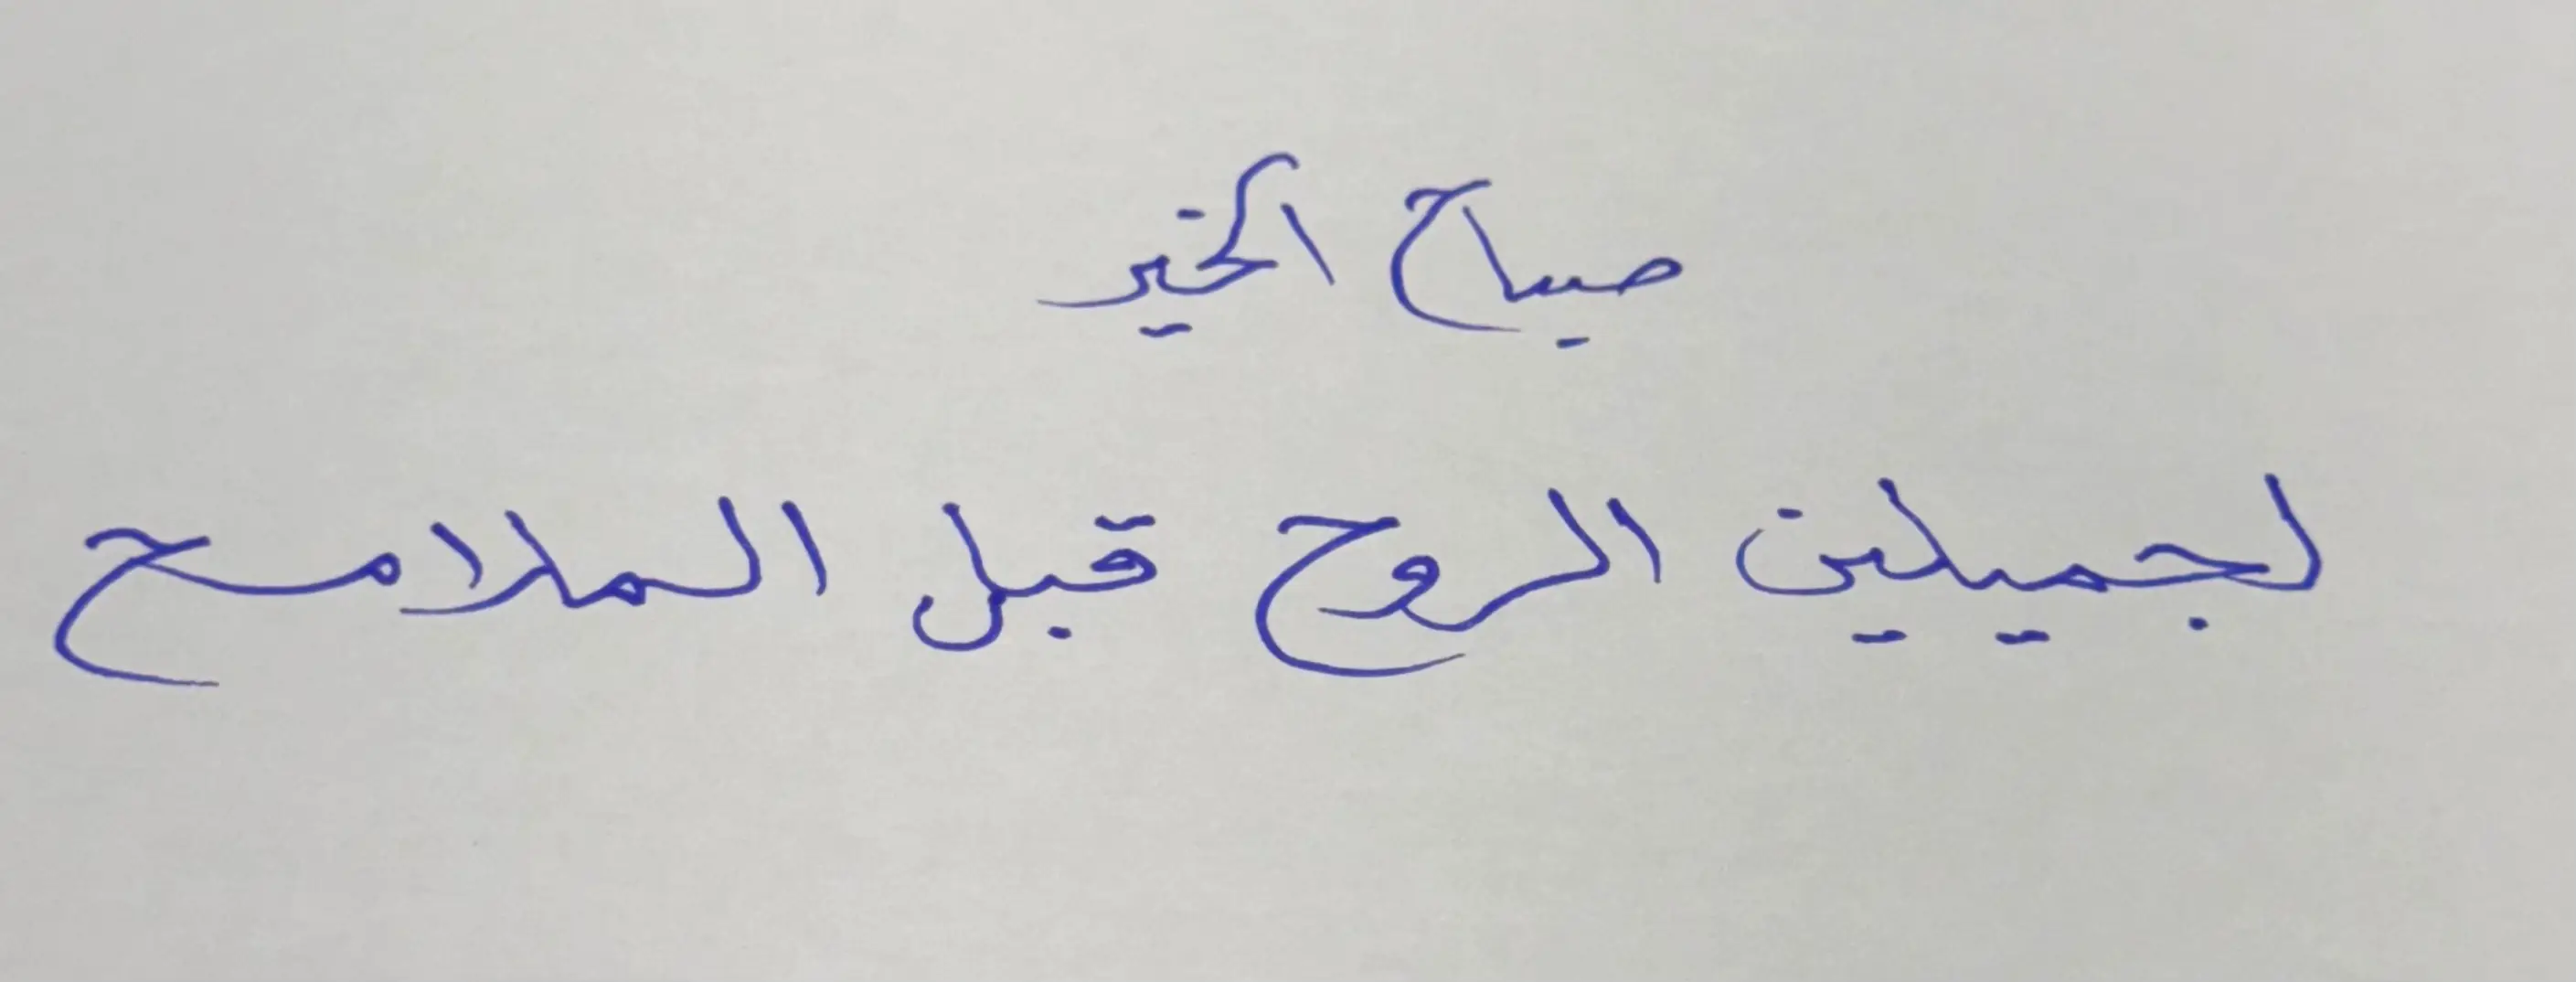 صباح الخير
لجميلين الروح قبل الملامح